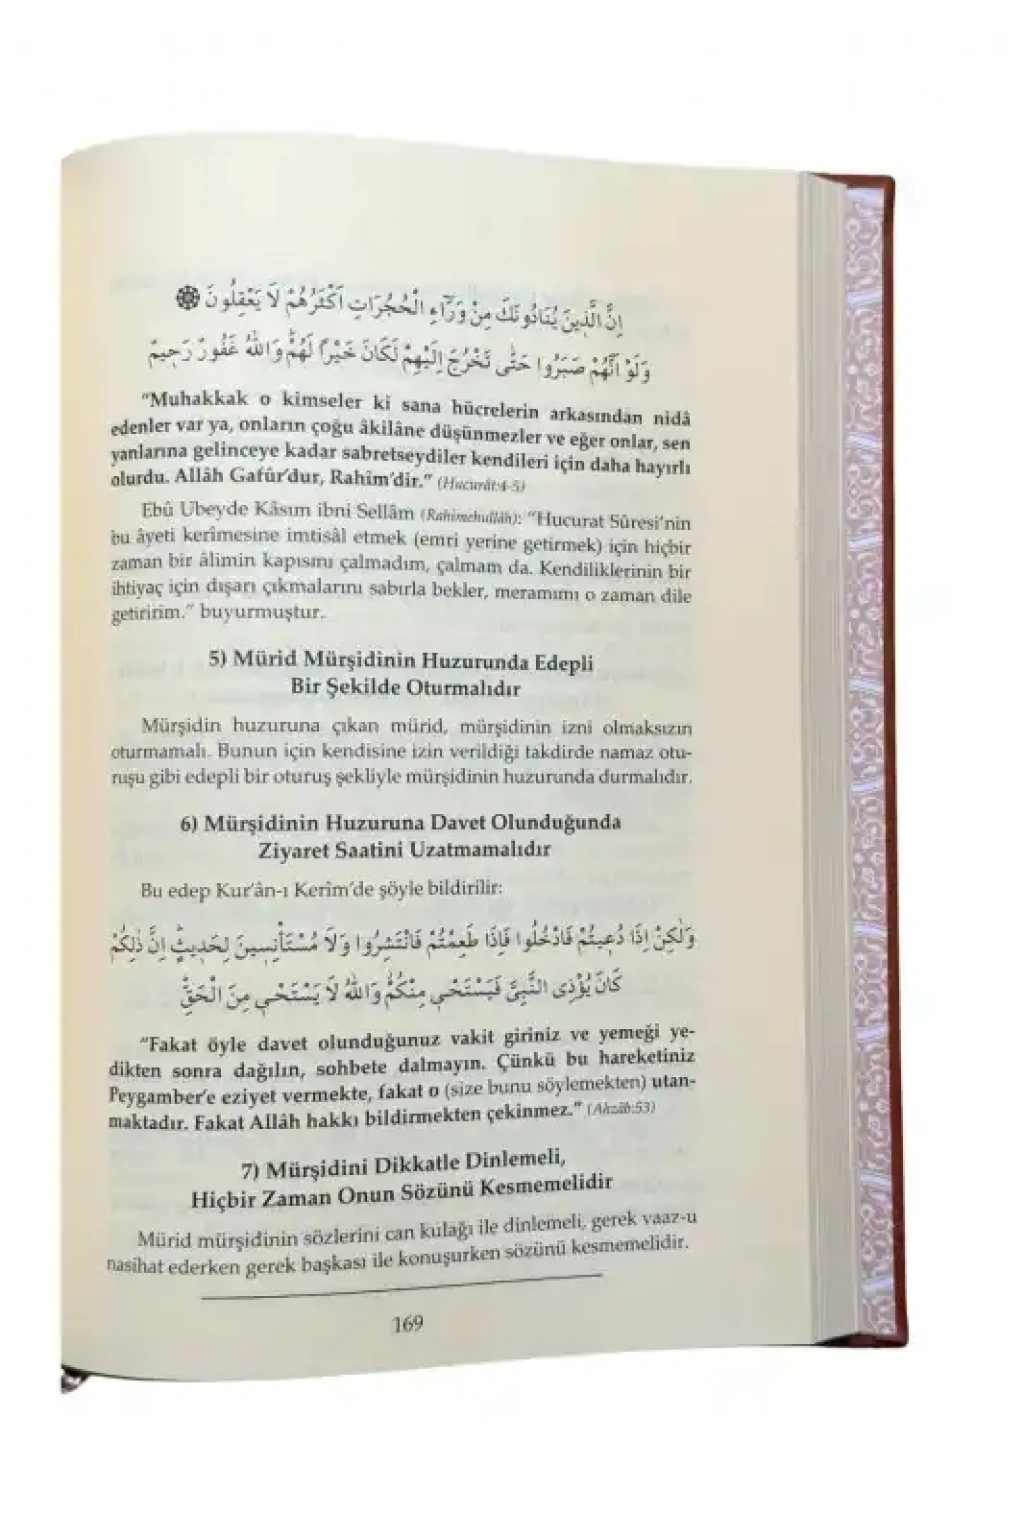 اِنَّ الَّذِينَ يُنَادُونَكَ مِنْ وَرَٓاءِ الْحُجُرَاتِ اَكْثَرُهُمْ لَا يَعْقِلُونَ
وَلَوْ اَنَّهُمْ صَبَرُوا حَتّٰى تَخْرُجَ اِلَيْهِمْ لَكَانَ خَيْرًا لَهُمْ وَاللّٰهُ غَفُورٌ رَحِيمٌ
"Muhakkak o kimseler ki sana hücrelerin arkasından nidâ
edenler var ya, onların çoğu âkilâne düşünmezler ve eğer onlar, sen
yanlarına gelinceye kadar sabretseydiler kendileri için daha hayırlı
olurdu. Allâh Gafûr'dur, Rahîm'dir." (Hucurât:4-5)
Ebû Ubeyde Kâsım ibni Sellâm (Rahimehullâh): "Hucurat Sûresi'nin
bu âyeti kerîmesine imtisâl etmek (emri yerine getirmek) için hiçbir
zaman bir âlimin kapısını çalmadım, çalmam da. Kendiliklerinin bir
ihtiyaç için dışarı çıkmalarını sabırla bekler, meramımı o zaman dile
getiririm." buyurmuştur.
5) Mürid Mürşidinin Huzurunda Edepli
Bir Şekilde Oturmalıdır
Mürşidin huzuruna çıkan mürid, mürşidinin izni olmaksızın
oturmamalı. Bunun için kendisine izin verildiği takdirde namaz otu-
ruşu gibi edepli bir oturuş şekliyle mürşidinin huzurunda durmalıdır.
6) Mürşidinin Huzuruna Davet Olunduğunda
Ziyaret Saatini Uzatmamalıdır
Bu edep Kur'ân-ı Kerîm'de şöyle bildirilir:
وَلٰكِنْ اِذَا دُعِيتُمْ فَادْخُلُوا فَاِذَا طَعِمْتُمْ فَانْتَشِرُوا وَلَا مُسْتَأْنِسِينَ لِحَدِيثٍ اِنَّ ذٰلِكُمْ
كَانَ يُؤْذِى النَّبِىَّ فَيَسْتَحْىِ مِنْكُمْ وَاللّٰهُ لَا يَسْتَحْىِ مِنَ الْحَقِّ
"Fakat öyle davet olunduğunuz vakit giriniz ve yemeği ye-
dikten sonra dağılın, sohbete dalmayın. Çünkü bu hareketiniz
Peygamber'e eziyet vermekte, fakat o (size bunu söylemekten) utan-
maktadır. Fakat Allâh hakkı bildirmekten çekinmez." (Ahzâb:53)
7) Mürşidini Dikkatle Dinlemeli,
Hiçbir Zaman Onun Sözünü Kesmemelidir
Mürid mürşidinin sözlerini can kulağı ile dinlemeli, gerek vaaz-u
nasihat ederken gerek başkası ile konuşurken sözünü kesmemelidir.
169